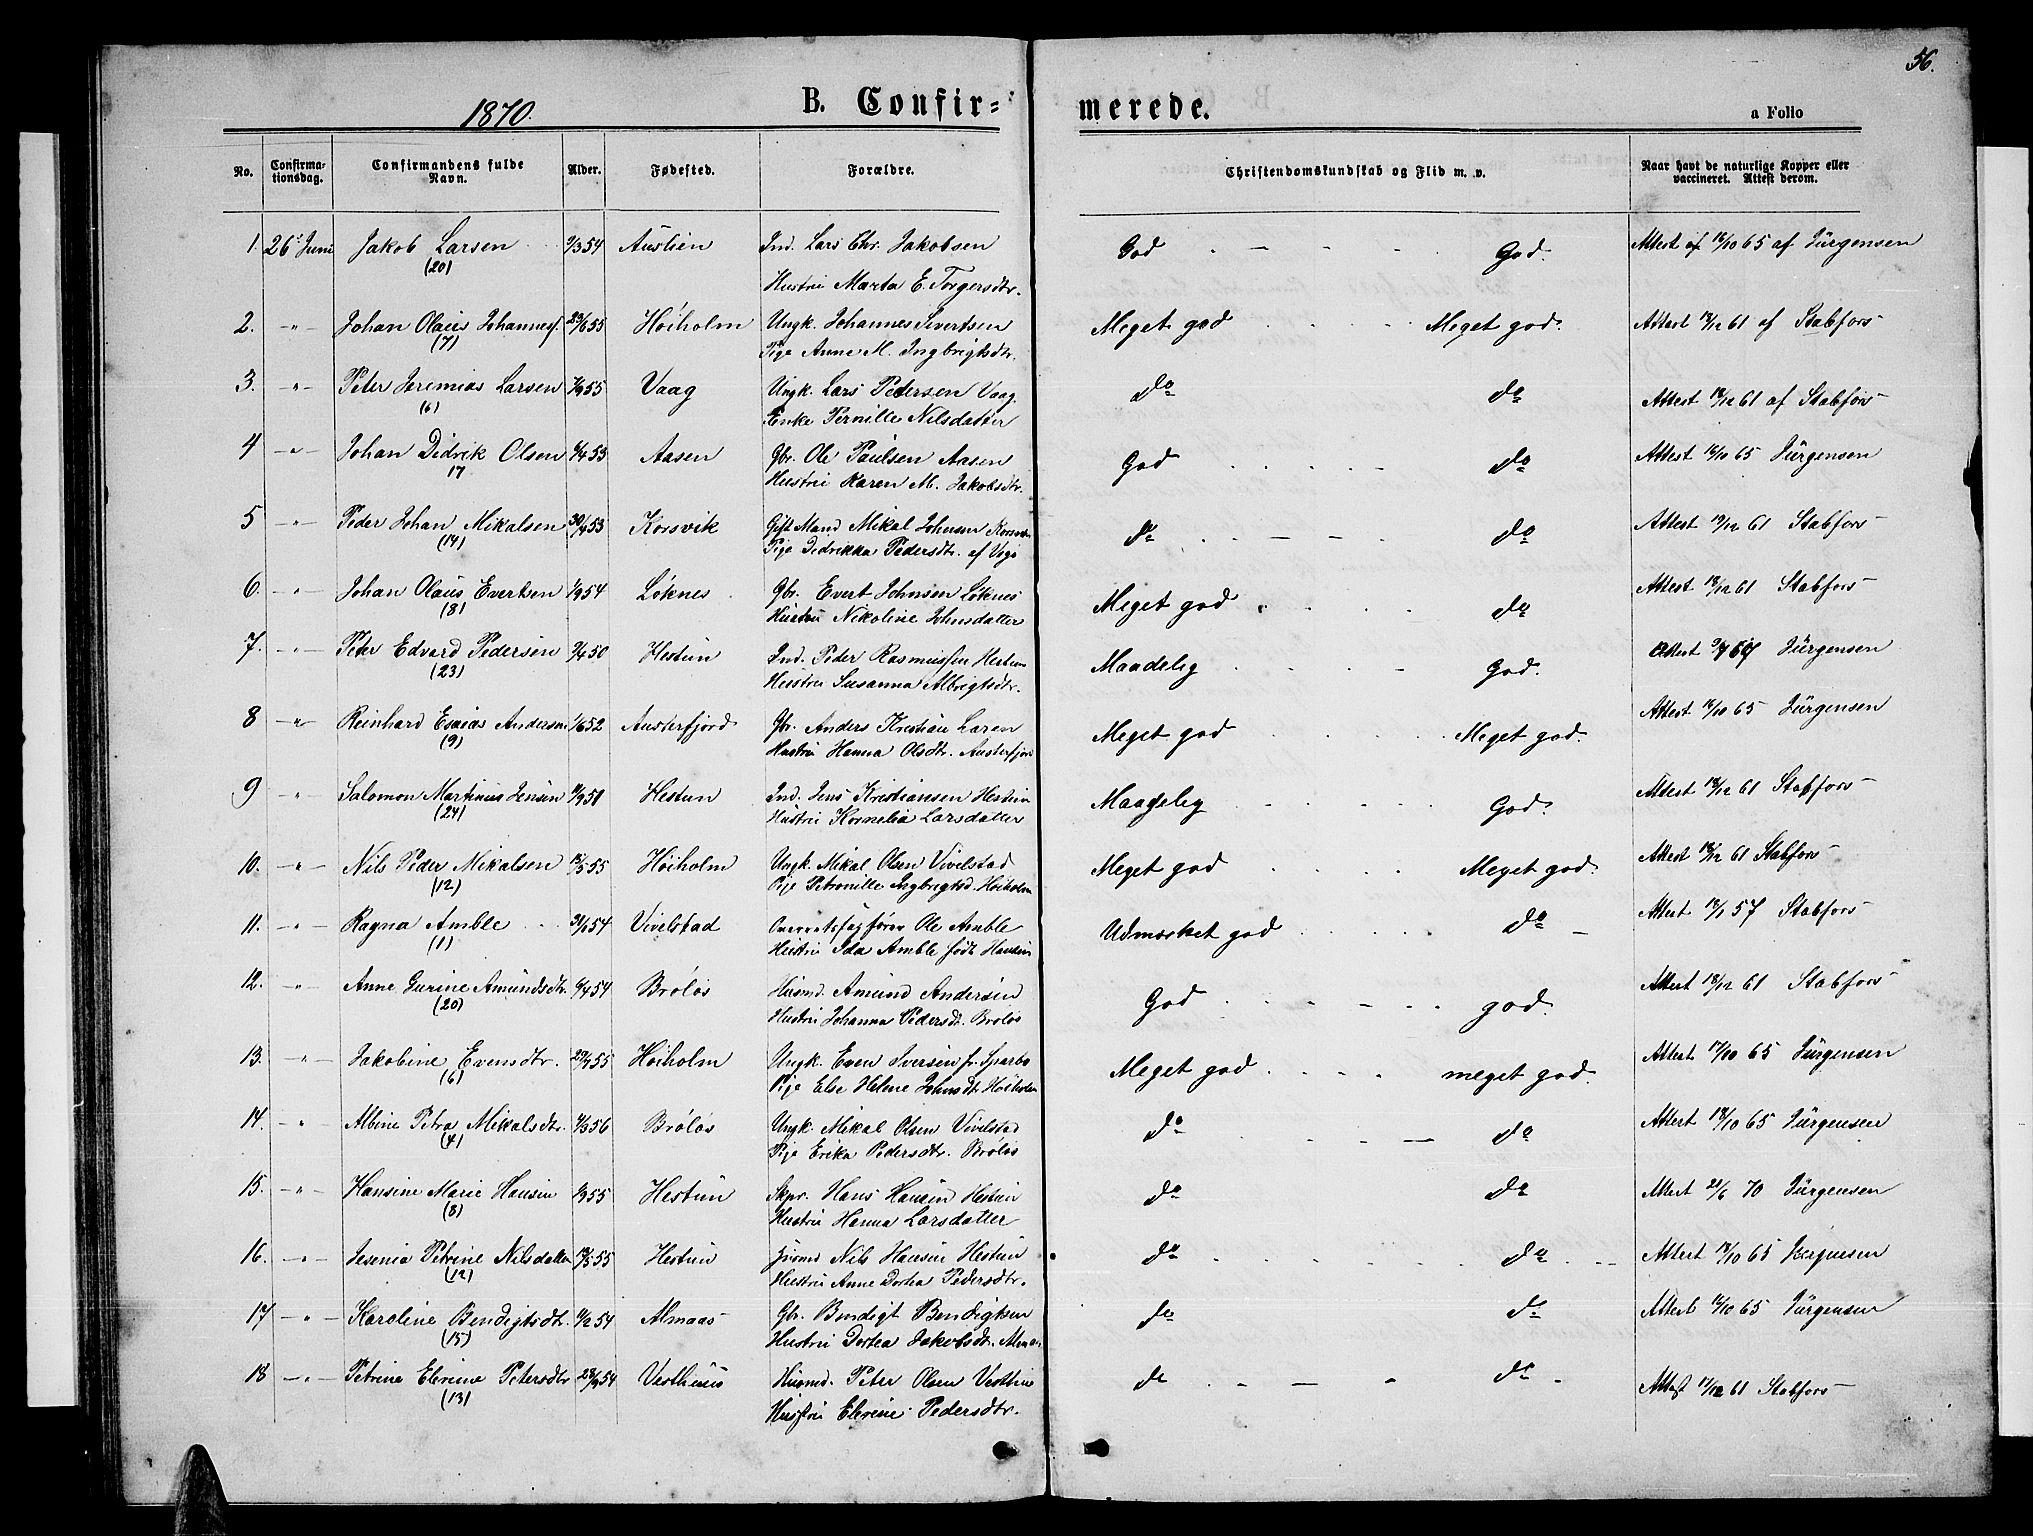 56.
1870. B. Confir= merede. a Folio
No. Confirma-tionsdag. Confirmandens fulde Navn. Alder. Fødested. Forældre. Christendomskundskab og Flid m. v. Naar havt de naturlige Kopper eller vaccineret. Attest derom.
1. 26de Juni Jakob Larsen 54 Austien Ind. Lars Chr. Jakobsen God - - - God. Attest af 18/10 65 af Jürgensen
(20) Hustru Marta E. Torgersdtr.
2. -"- Johan Olaus Johannesf. 23/6 55 Höiholm Ungk. Johannes Sivertsen Meget god Meget god. Attest 18/12 61 af Stabfors
(7) Pige Anne M. Ingbrigtsdtr.
3. -"- Peter Jeremias Larsen 55 Vaag Ungk. Lars Pedersen Vaag. do do Attest 18/12 61 af Stabfors
(6) Enke Pernille Nilsdatter
4 -"- Johan Didrik Olsen 6/4 53 Aasen Gbr. Ole Paulsen Aasen God do Attest 18/10 65 Jürgensen
17 Hustru Karen M. Jakobsdtr.
5 -"- Peder Johan Mikalsen 30/4 53 Korsvik Gift Mand Mikal Johnsen do do Attest 18/12 61 Stabfors
(14) Pige Didrikka Pedersdtr. af Vega
6. -"- Johan Olaus Evertsen 1/9 54 Løknes Gbr. Evert Johnsen Løknes Meget god do Attest 18/12 61 Stabfors
(8) Hustru Nikoline Johnsdatter
7. -"- Peter Edvard Pedersen 50 Hestun Ind. Peder Rasmussen Hestun Maadelig God. Attest 67 Jürgensen
(23) Hustru Susanna Albrigtsdtr.
8 -"- Reinhard Esaias Andersen 1/6 52 Austerfjord Gbr. Anders Kristian Laren Meget god Meget god. Attest 18/10 65 Jürgensen
(9) Hustru Hanna Olsdtr. Austerfjord
9 " Salomon Martinus Jensen 51 Hestun Ind. Jens Kristiansen Hestun Maadelig God. Attest 18/12 61 Stabfors
(24) Hustru Kornelia Larsdatter
10. -"- Nils Peder Mikalsen 55 Höiholm Ungk. Mikal Olsen Vivelstad Meget god Meget god. Attest 18/12 61 Stabfors
(12) Pige Petronille Ingbrigtsd. Höiholm
11. -"- Ragna Amble 54 Vivelstad Overretssagfører Ole Amble Udmærket god do - Attest 57 Stabfors
(1) Hustru Ida Amble født Hansen
12. " Anne Gurine Amundsdtr. 6/4 54 Bröløs Husmd. Amund Andersen God god. Attest 18/12 61 Stabfors
(20) Hustru Johanna Pedersdt. Bröløs
13. " Jakobine Evensdtr. 29/4 55 Höiholm Ungk. Even Iversen fr. Sparbo Meget god meget god. Attest 17/10 65 Jürgensen
(6) Pige Else Helene Johnsdt. Höiholm
14. " Albine Petra Mikalsdtr. 4/3 56 Bröløs Ungk. Mikal Olsen Vivelstad do do Attest 18/10 65 Jürgensen
(4) Pige Erika Pedersdtr. Bröløs
15. -"- Hansine Marie Hansen 55 Hestun Skpr. Hans Hansen Hestun do do Attest 21/6 70 Jürgensen
(8) Hustru Hanna Larsdatter
16. -"- Jesenia Petrine Nilsdatter 55 Hestun Husmd Nils Hansen Hestun do do Attest 18/10 65 Jürgensen
(12) Hustru Anne Dortea Pedersdtr.
17 -"- Karoline Bendigtsdtr. 11/2 54 Almaas Gbr. Bendigt Bendigtsen do do Attest 18/10 65 Jürgensen
(15) Hustru Dortea Jakobsdt. Almaas
18 -"- Petrine Elerine Petersdtr 54 Vesthuus Husmd. Peter Olsen Vesthus do do Attest 18/12 61 Stabfors
(13) Hustru Elerine Pedersdtr.